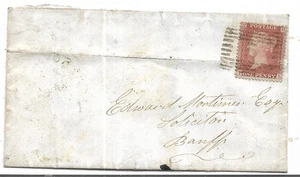 POSTAGE
ONE PENNY
Edward Mortimer Esq.
Solicitor
Banff